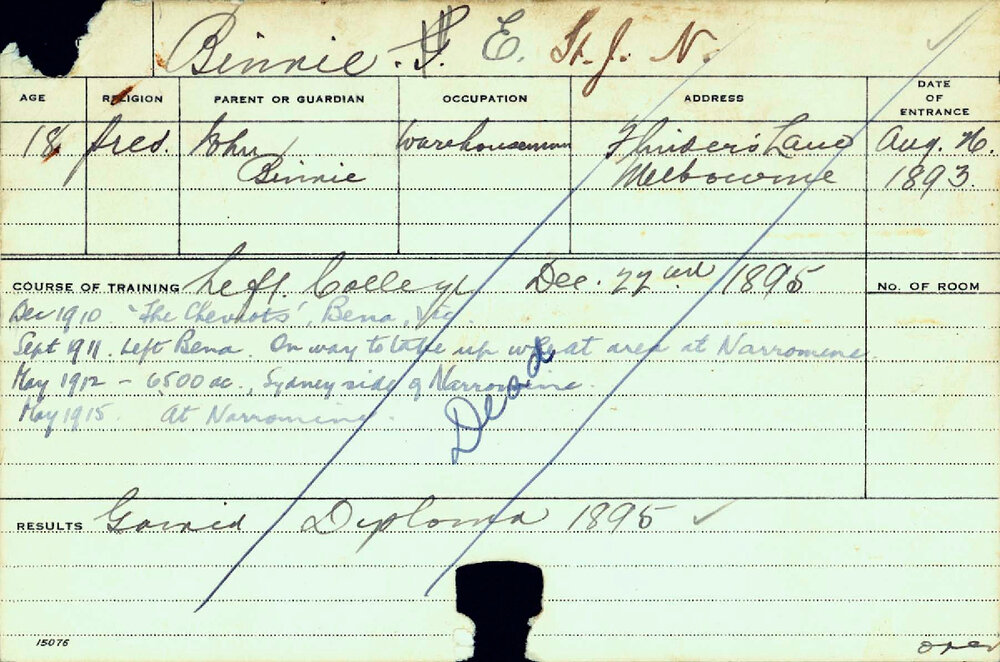 Binnie. E. St. J. N.
AGE RELIGION PARENT OR GUARDIAN OCCUPATION ADDRESS DATE OF ENTRANCE
18 Pres. John Warehouseman Flinders Lane Aug. 16.
Binnie Melbourne 1893.
COURSE OF TRAINING Left College Dec. 22nd 1895 No. OF ROOM
Dec 1910 "The Cheviots", Bena, Vic.
Sept 1911. Left Bena. On way to take up wheat area at Narromine.
May 1912 - 6500 ac., Sydney side of Narromine.
May 1915. At Narromine.
Dead
RESULTS Gained Diploma 1895 ✓
15076
over